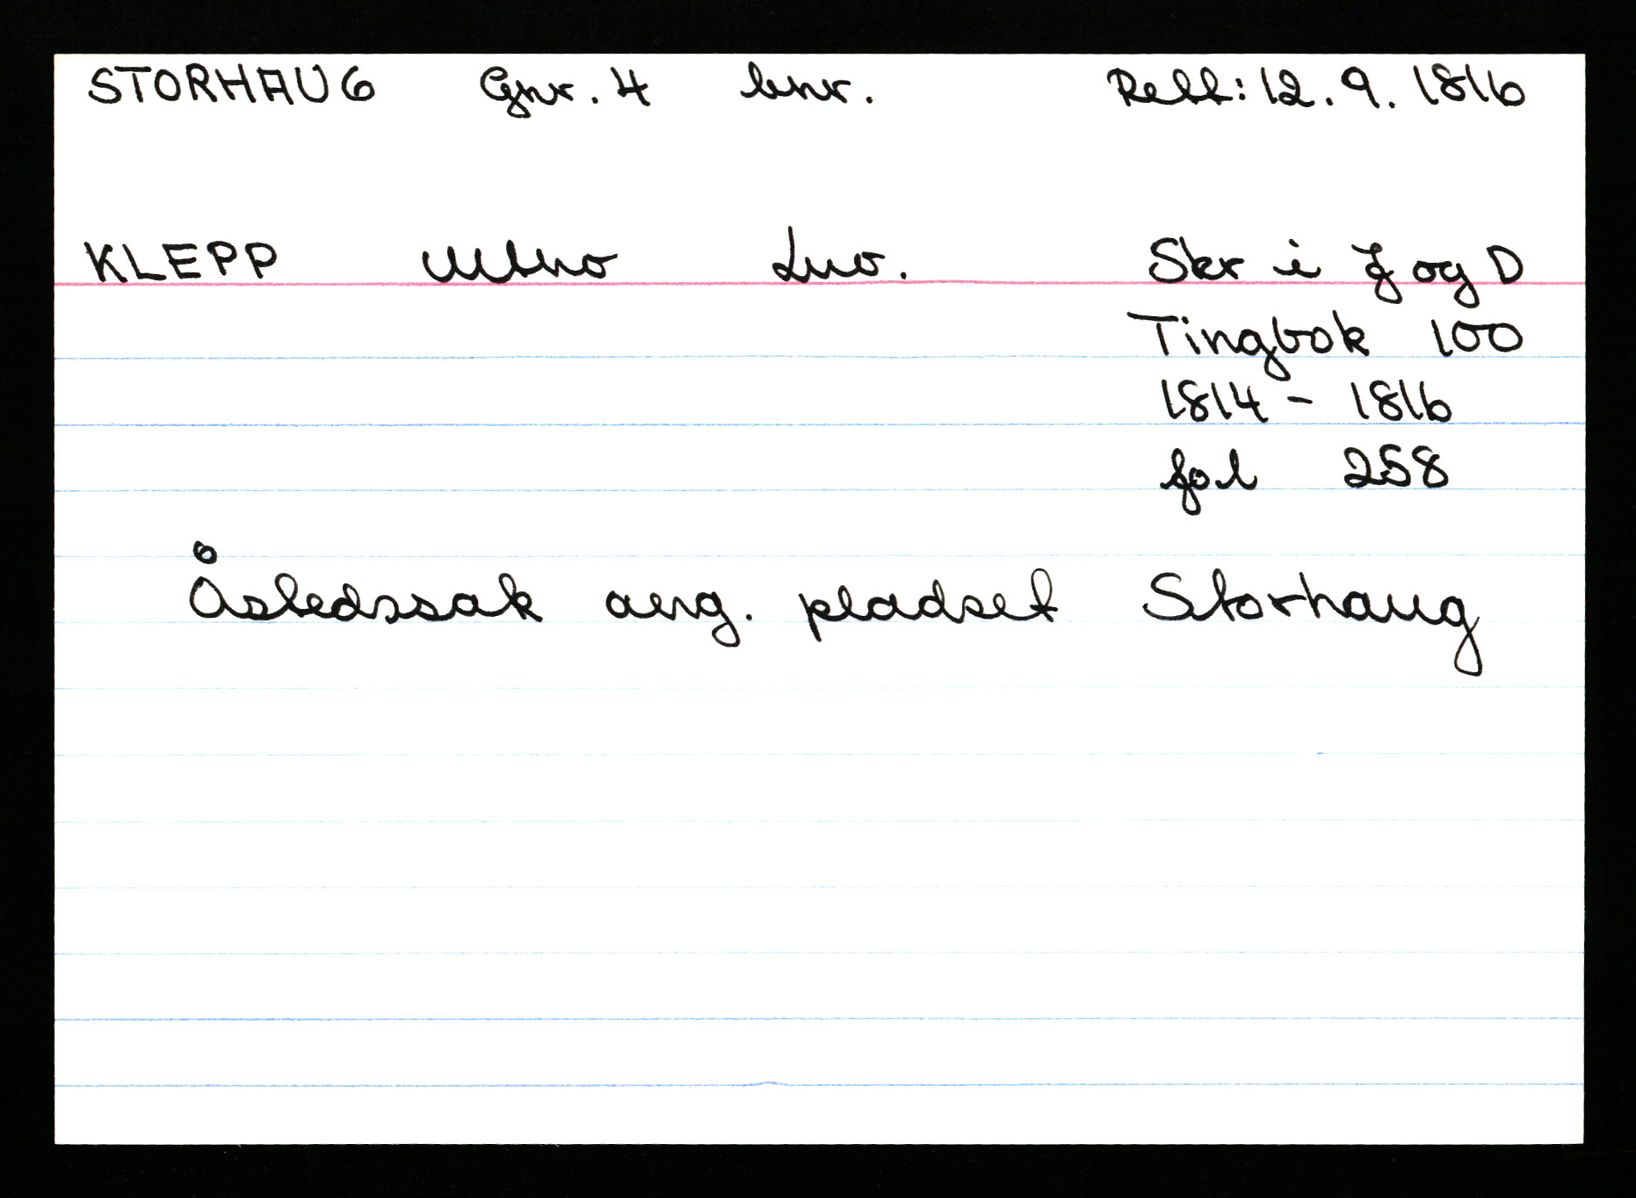 STORHAUG Gnr. 4 bnr. Rett: 12.9.1816
KLEPP Utbro Lno. Skr i J og D
Tingbok 100
1814 - 1816
fol 258
Åstedssak ang. pladset Storhaug